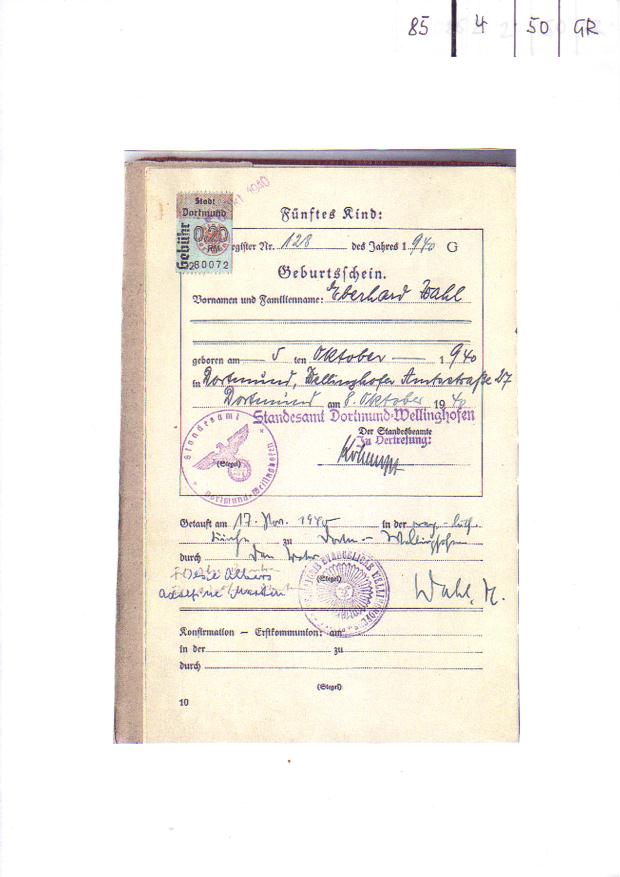 85 4 50 GR
Stadt
Dortmund
Gebühr
0.20
RM
280072
1940
Fünftes Kind:
egister Nr. 128 des Jahres 1940 G
Geburtsschein.
Vornamen und Familienname: Eberhard Wahl
geboren am 5 ten Oktober 1940
in Dortmund, Wellinghofer Amtsstraße 27
Dortmund am 8. Oktober 1940
Standesamt Dortmund-Wellinghofen
Der Standesbeamte
In Vertretung:
Standesamt
(Siegel)
Dortmund-Wellinghofen
Getauft am 17. Nov. 1940 in der evag.-luth.
Kirche zu Dortm.-Wellinghofen
durch den Vater
(Siegel)
Wahl, M.
Konfirmation – Erstkommunion: am
in der zu
durch
(Siegel)
10